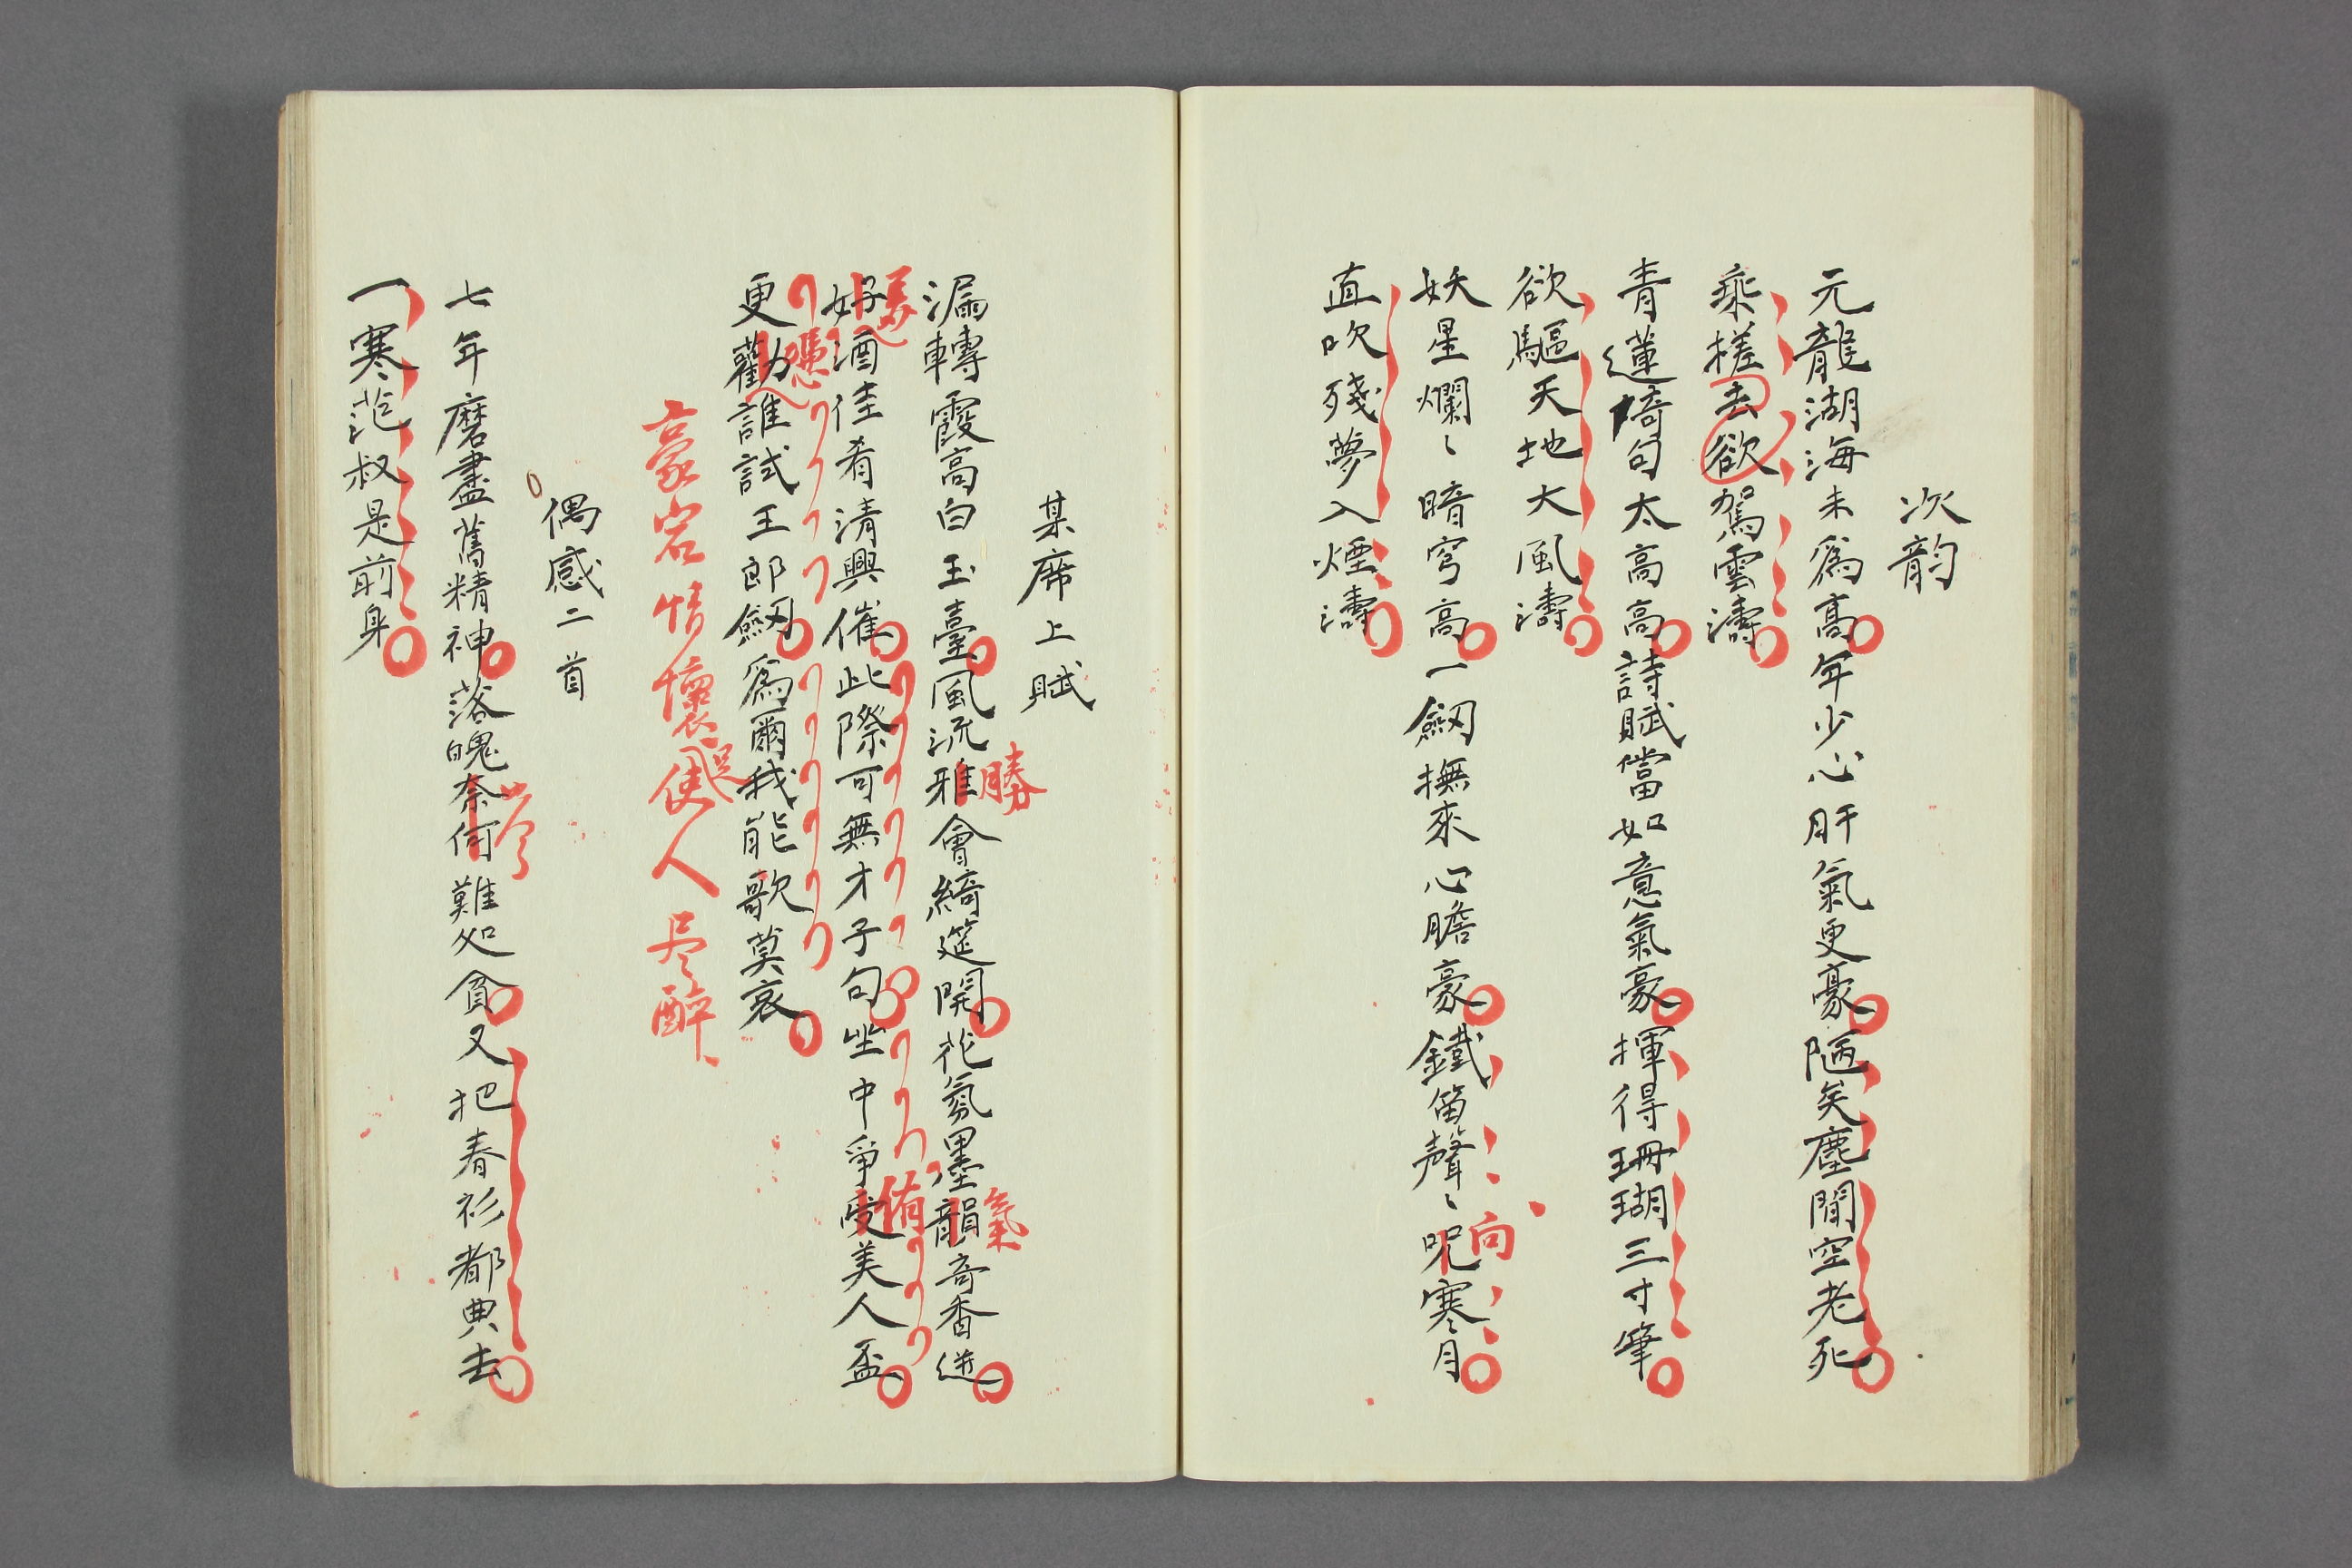 次韵
元龍湖海未爲高年少心肝氣更豪陋矣塵間空老死
乘槎去欲駕雲濤
青蓮綺句太高高詩賦當如意氣豪揮得珊瑚三寸筆
欲驅天地大風濤
妖星爛〻暗穹高一劔撫來心膽豪鐵笛聲〻呪寒月
向
直吹殘夢入煙濤
某席上賦
漏轉霞高白玉臺風流雅會綺筵開花氛墨韻奇香迸
勝
氣
好酒佳肴清興催此際可無才子句坐中爭受美人盃
美
侑
更勸誰試王郎劔爲爾我能歌莫哀
憑
豪宕情懷使人尽醉
足
偶感二首
七年磨盡舊精神落魄奈何難処貧又把春衫都典去
一寒范叔是前身